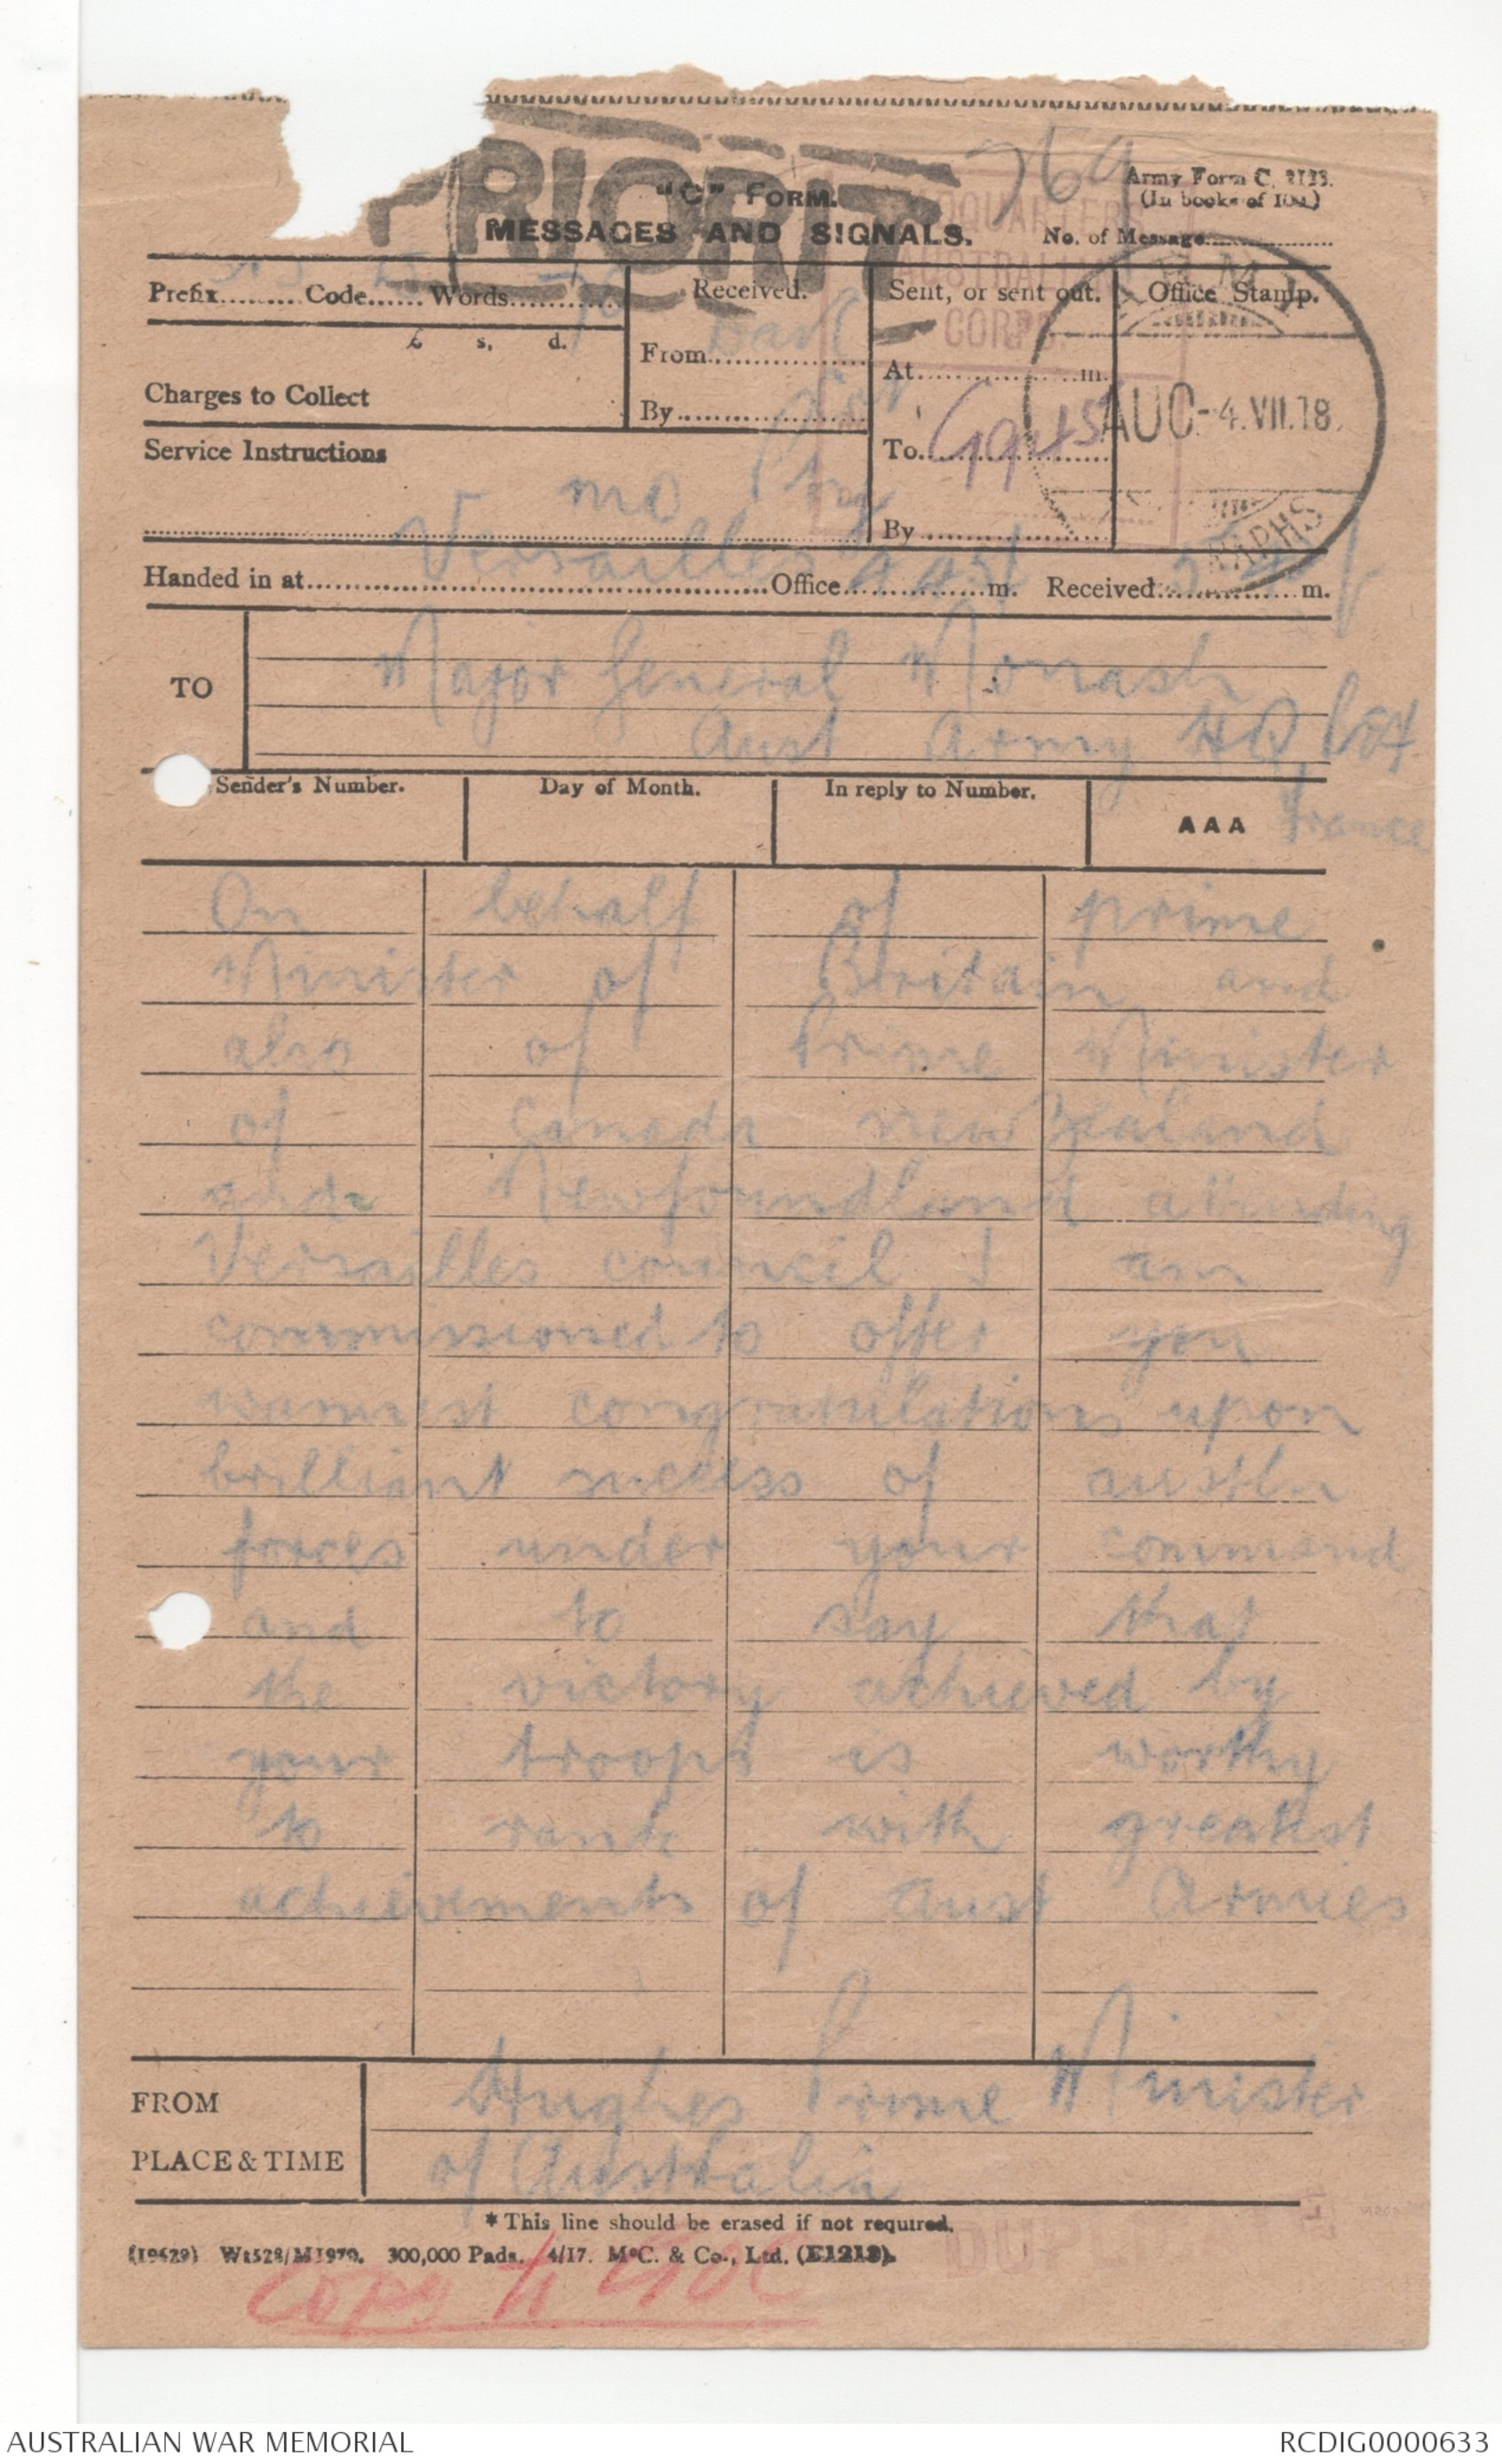 PRIORIT
769
"C" FORM.
Army Form C. 2123.
(In books of 100.)
MESSAGES AND SIGNALS.
No. of Message
HEADQUARTERS
AUSTRALIAN
CORPS.
Prefix Code Words
Received.
Sent, or sent out.
Office Stamp.
£ s. d.
From
At m.
Charges to Collect
By
AUC-4.VII.18.
Service Instructions
To
By
Handed in at Versailles Office m. Received m.
TO
Major General Monash
Aust Army HQ
France
Sender's Number.
Day of Month.
In reply to Number.
AAA
On behalf of prime
Minister of Britain and
also of Prime Minister
of Canada new Zealand
and Newfoundland attending
Versailles council I am
commissioned to offer you
warmest congratulations upon
brilliant success of austln
forces under your command
and to say that
the victory achieved by
your troops is worthy
to rank with greatest
achievements of Aust Armies
FROM
Hughes Prime Minister
PLACE & TIME
of Australia
* This line should be erased if not required.
(19629) Wt528/M1970. 300,000 Pads. 4/17. McC. & Co., Ltd. (E1213).
Copy to GOC
AUSTRALIAN WAR MEMORIAL
RCDIG0000633